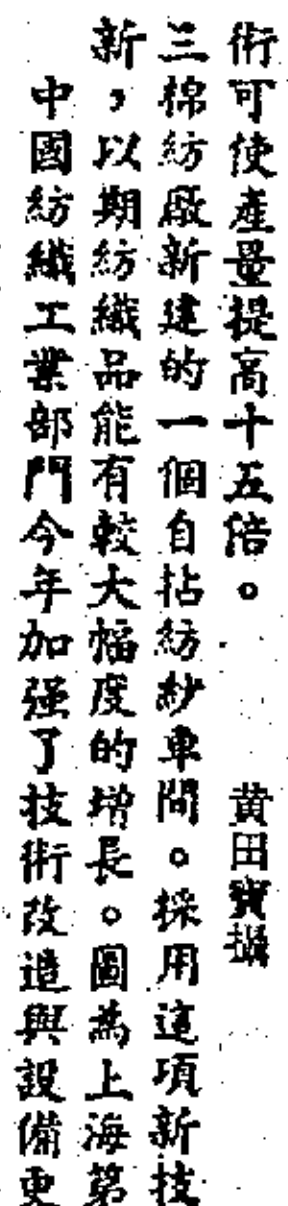 中國紡織工業部門今年加强了技術改造與設備更
新，以期紡織品能有較大幅度的增長。圖為上海第
三棉紡廠新建的一個自拈紡紗車間。採用這項新技
術可使產量提高十五倍。 黄田寶攝